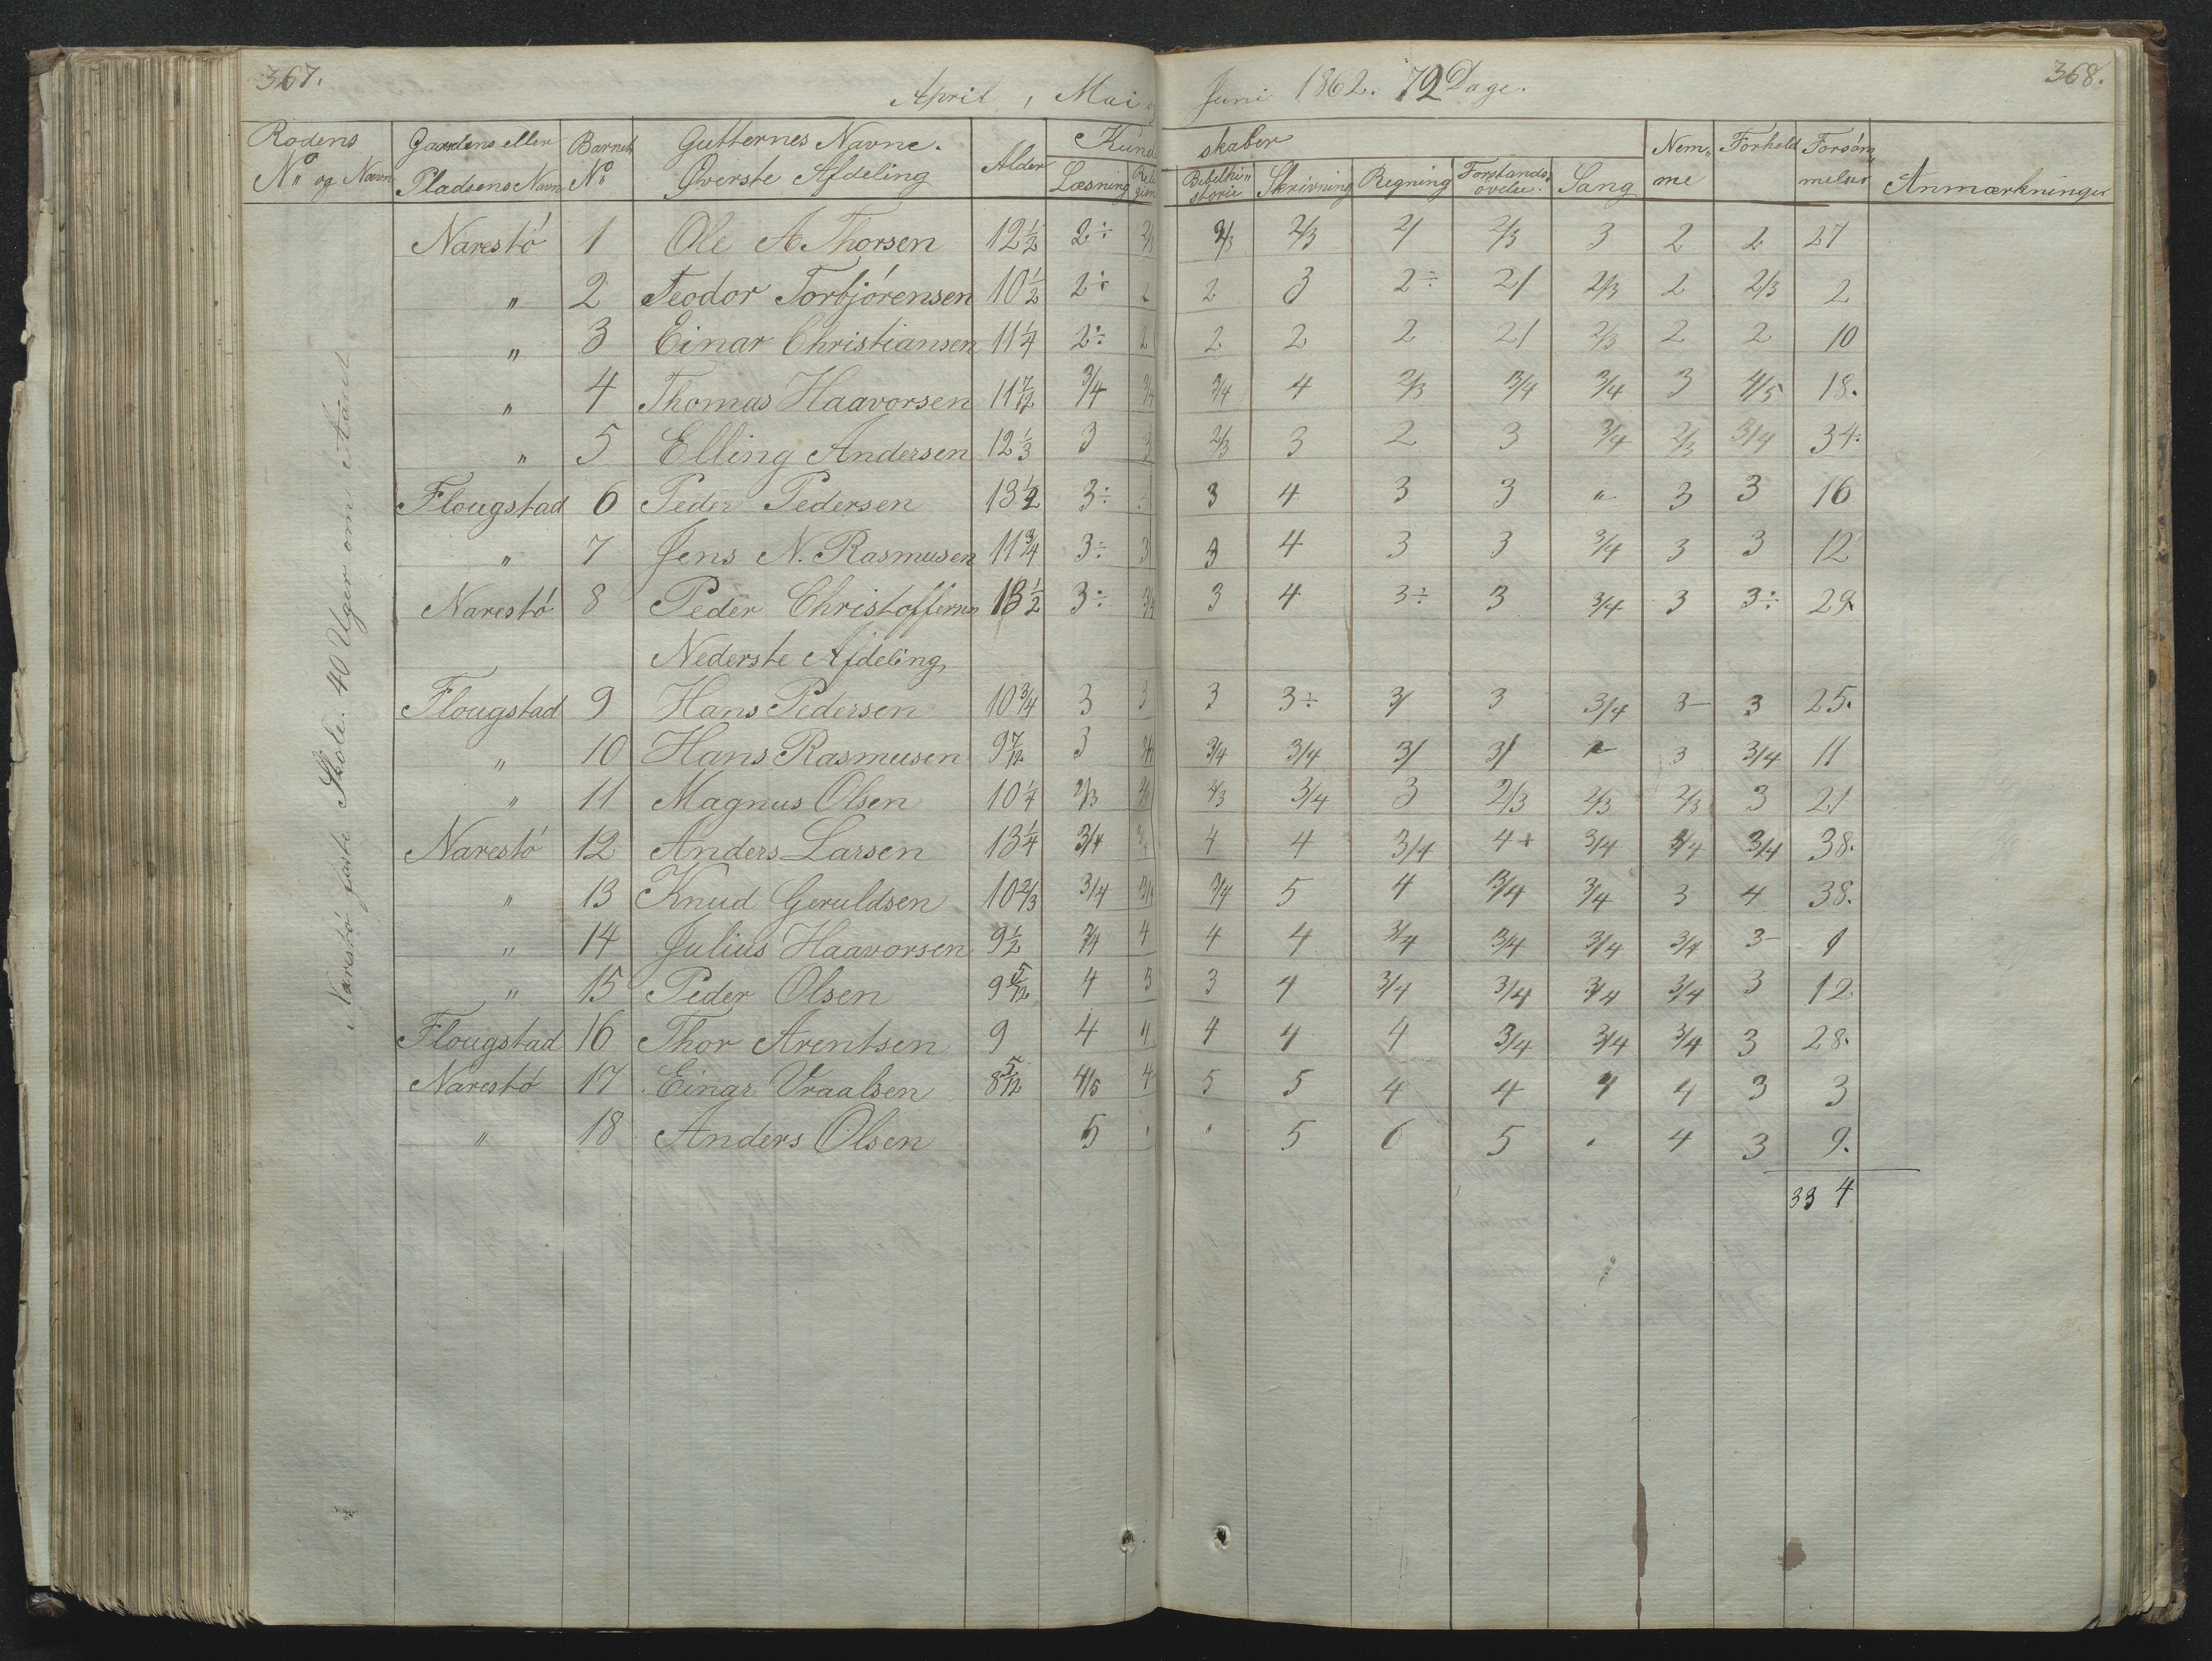 367.
April, Mai og Juni 1862. 72 Dage.
368.
Rodens No og Navn | Gaardens eller Pladsens Navn | Barnets No | Gutternes Navne. Øverste Afdeling | Alder | Kundskaber: Læsning | Religion | Bibelhistorie | Skrivning | Regning | Forstandsøvelse. | Sang | Nemme | Forhold | Forsømmelser | Anmærkninger
Narestø faste Skole. 40 Uger om Aaret
Narestø 1 Ole A Thorsen 12 1/2 2÷ 2/3 2/3 2/3 2/ 2/3 3 2 2 27
" 2 Teodor Torbjørensen 10 1/2 2÷ 2 2 3 2÷ 2/ 2/3 2 2/3 2
" 3 Einar Christiansen 11 1/4 2÷ 2 2 2 2 2/ 2/3 2 2 10
" 4 Thomas Haavorsen 11 7/12 3/4 3/4 3/4 4 2/3 3/4 3/4 3 4/5 18.
" 5 Elling Andersen 12 1/3 3 3 2/3 3 2 3 3/4 2/3 3/4 34.
Flougstad 6 Peder Pedersen 13 1/2 3÷ 3 4 3 3 " 3 3 16
" 7 Jens N. Rasmusen 11 3/4 3÷ 3 3 4 3 3 3/4 3 3 12
Narestø 8 Peder Christoffersen 13 1/2 3÷ 3/4 3 4 3÷ 3 3/4 3 3÷ 29
Nederste Afdeling
Flougstad 9 Hans Pedersen 10 3/4 3 3 3 3÷ 3/ 3 3/4 3- 3 25.
" 10 Hans Rasmusen 9 7/12 3 3/4 3/4 3/4 3/ 3/ " 3 3/4 11
" 11 Magnus Olsen 10 1/4 2/3 2/3 2/3 3/4 3 2/3 2/3 2/3 3 21
Narestø 12 Anders Larsen 13 1/4 3/4 3/4 4 4 3/4 4+ 3/4 3/4 3/4 38.
" 13 Knud Geruldsen 10 2/3 3/4 3/4 3/4 5 4 3/4 3/4 3 4 38.
" 14 Julius Haavorsen 9 1/2 3/4 4 4 4 3/4 3/4 3/4 3/4 3- 1
" 15 Peder Olsen 9 5/12 4 3 3 4 3/4 3/4 3/4 3/4 3 12.
Flougstad 16 Thor Arentsen 9 4 4 4 4 4 3/4 3/4 3/4 3 28.
Narestø 17 Einar Vraalsen 8 5/12 4/5 4 5 5 4 4 4 4 3 3
" 18 Anders Olsen 5 " " 5 6 5 " 4 3 9.
334